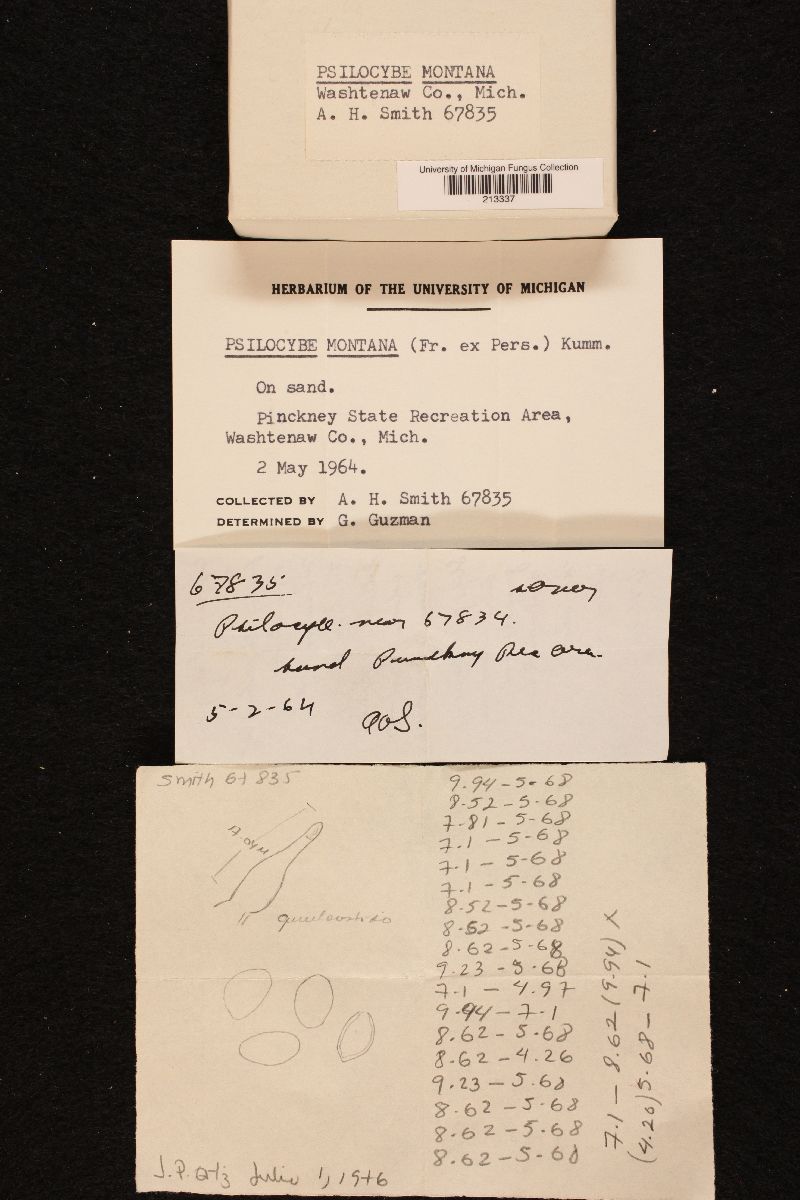 PSILOCYBE MONTANA
Washtenaw Co., Mich.
A. H. Smith 67835
University of Michigan Fungus Collection
213337
HERBARIUM OF THE UNIVERSITY OF MICHIGAN
PSILOCYBE MONTANA (Fr. ex Pers.) Kumm.
On sand.
Pinckney State Recreation Area,
Washtenaw Co., Mich.
2 May 1964.
COLLECTED BY A. H. Smith 67835
DETERMINED BY G. Guzman
67835
Psilocybe near 67834.
sand Rec area
5-2-64
Smith 67835
9.94-5-68
8.52-5-68
7.81-5-68
7.1-5-68
7.1-5-68
7.1-5-68
8.52-5-68
8.52-5-68
8.62-5-68
9.23-5-68
7.1-4.97
9.94-7.1
8.62-5.68
8.62-4.26
9.23-5.68
8.62-5.68
8.62-5.68
8.62-5.68
7.1-8.62(9.94) X
(4.26)5.68-7.1
J.P. Julio 1, 1976